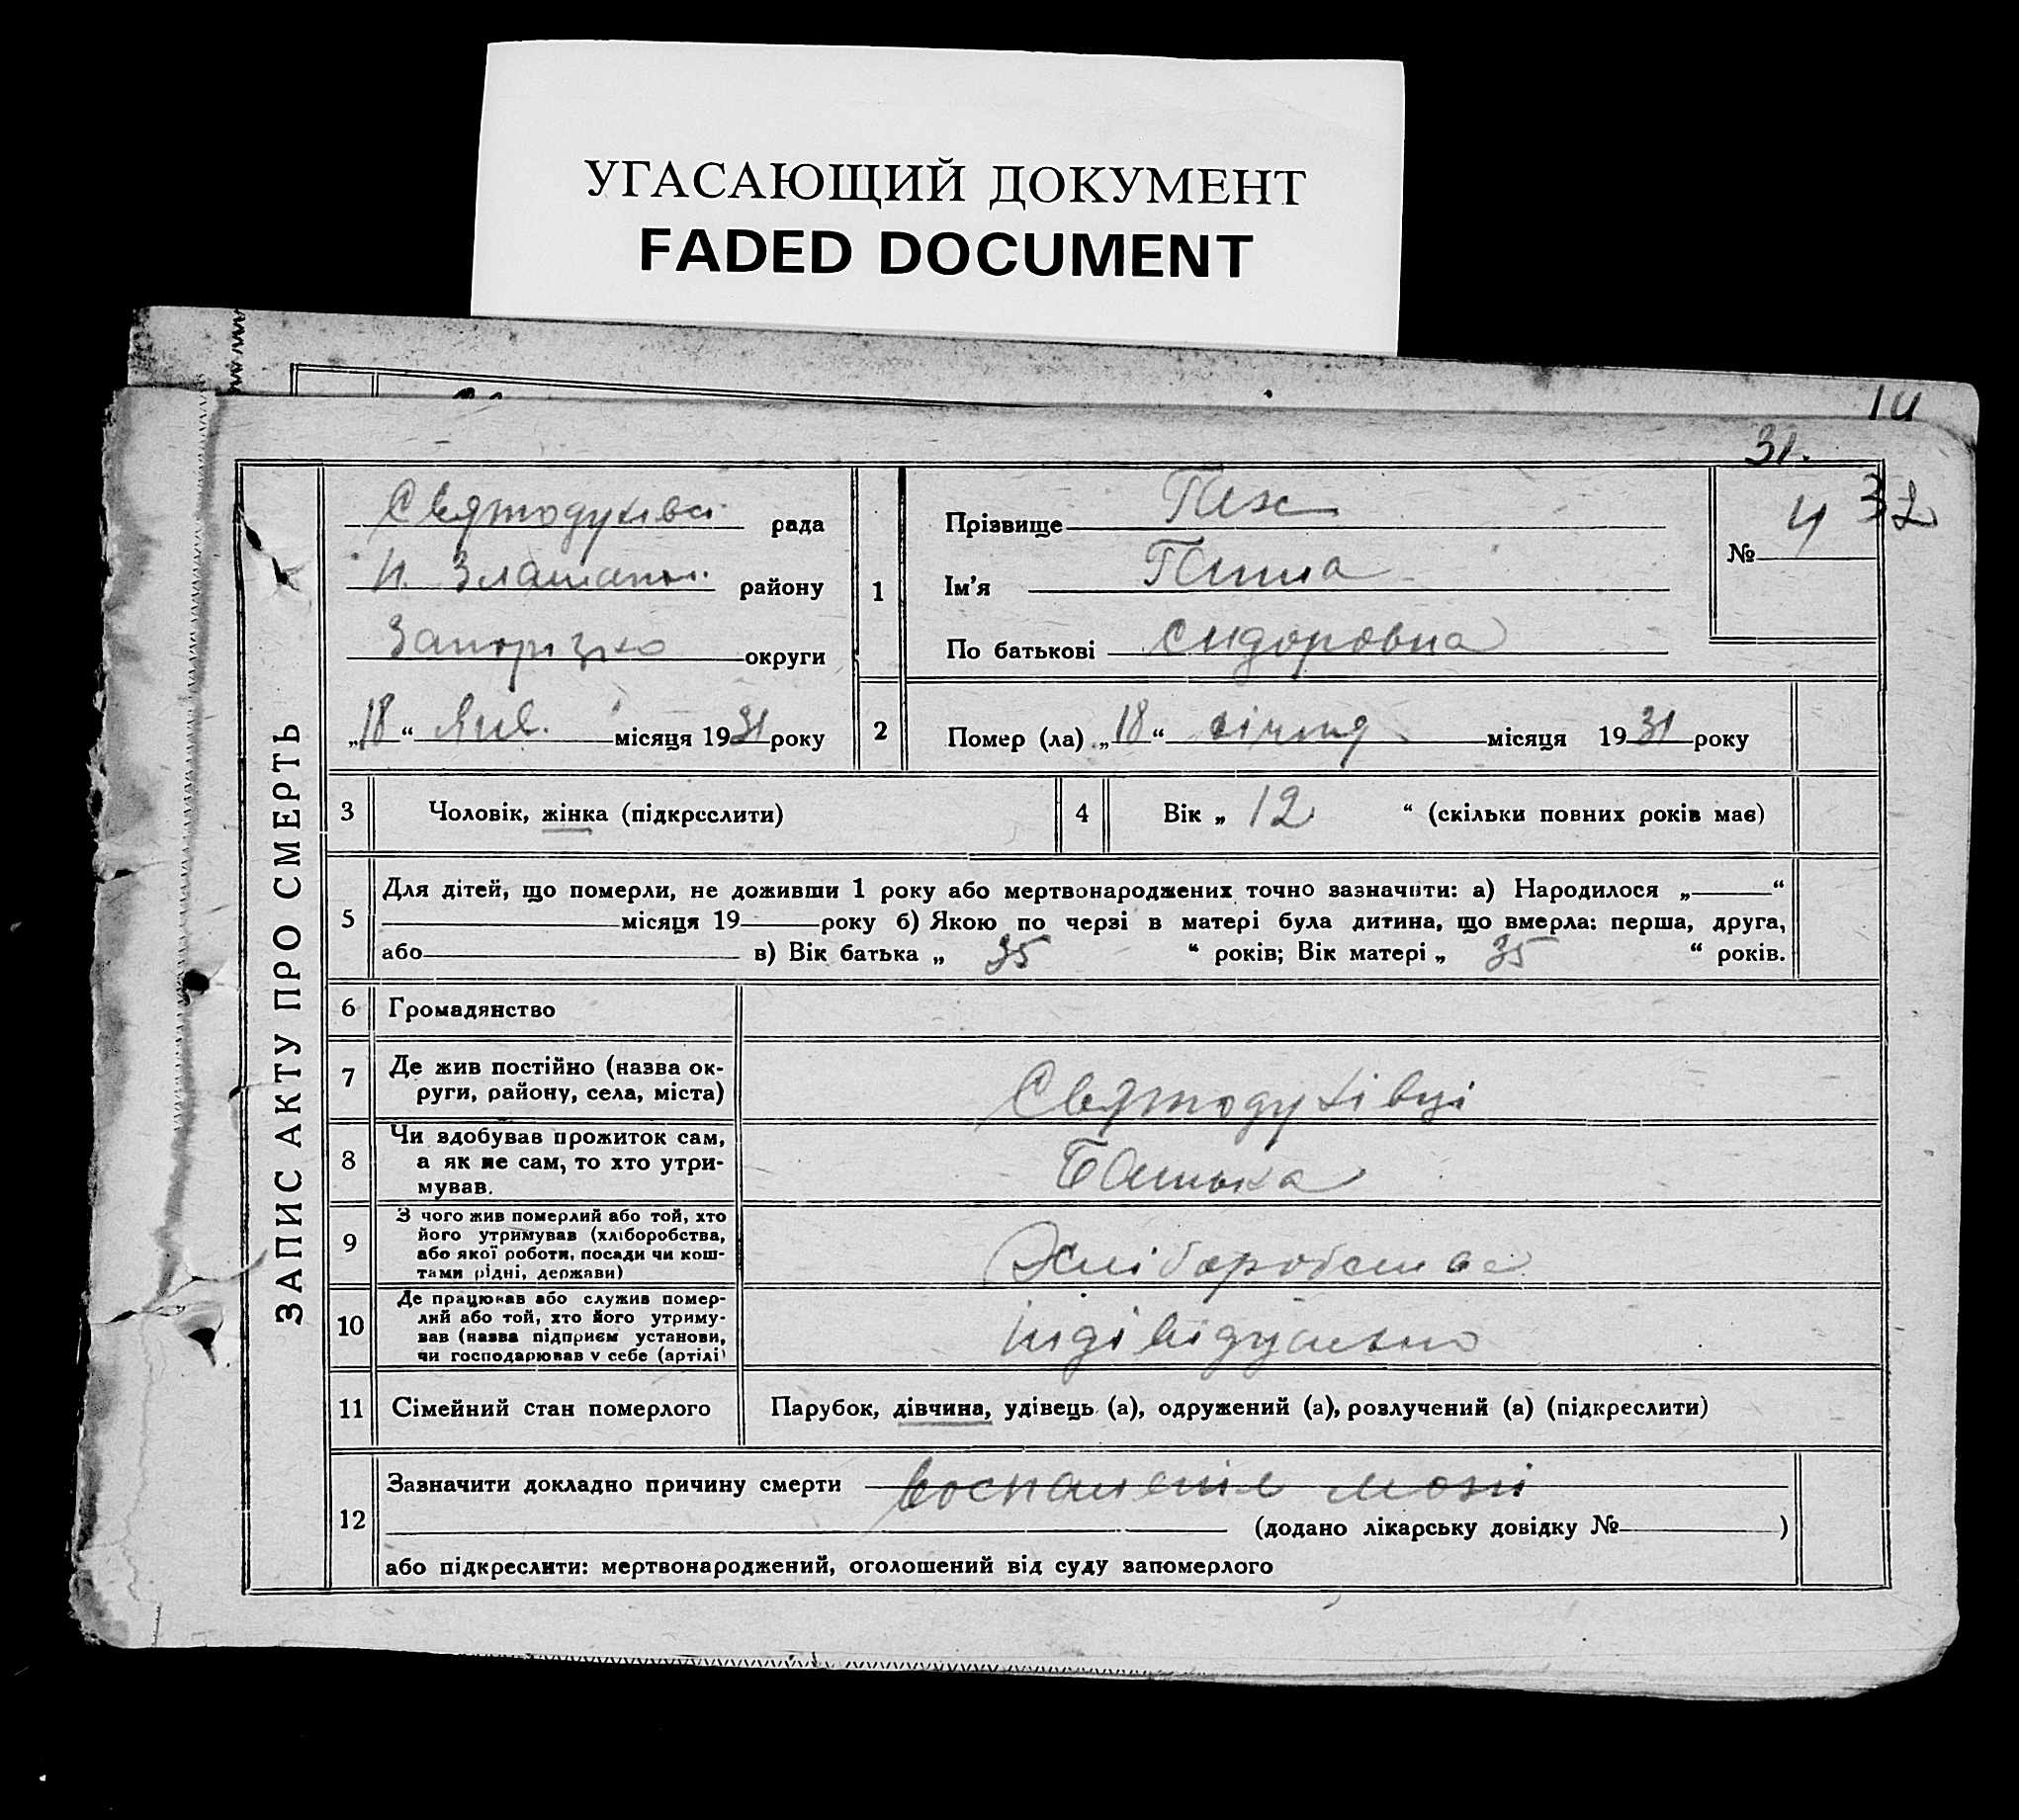 УГАСАЮЩИЙ ДОКУМЕНТ
FADED DOCUMENT
14
31.
32
ЗАПИС АКТУ ПРО СМЕРТЬ
Святодухівсь рада
Н. Златопол. району
Запорізко округи
„18“ Янв. місяця 1931 року
1
Прізвище
Ім'я Ганна
По батькові Сидоровна
№ 4
2
Помер (ла) „18“ січня місяця 1931 року
3 Чоловік, жінка (підкреслити)
4 Вік „ 12 “ (скільки повних років має)
5
Для дітей, що померли, не доживши 1 року або мертвонароджених точно зазначити: а) Народилося „ “
місяця 19 року б) Якою по черзі в матері була дитина, що вмерла: перша, друга,
або в) Вік батька „ 35 “ років; Вік матері „ 35 “ років.
6 Громадянство
7
Де жив постійно (назва ок-
руги, району, села, міста)
Святодухівці
8
Чи здобував прожиток сам,
а як не сам, то хто утри-
мував.
Батька
9
З чого жив померлий або той, хто
його утримував (хліборобства,
або якої роботи, посади чи кош-
тами рідні, держави)
Хліборобства
10
Де працював або служив помер-
лий або той, хто його утриму-
вав (назва підприєм установи,
чи господарював у себе (артілі)
індівідуально
11 Сімейний стан померлого
Парубок, дівчина, удівець (а), одружений (а), розлучений (а) (підкреслити)
12
Зазначити докладно причину смерти воспаленіє мозгі
(додано лікарську довідку № )
або підкреслити: мертвонароджений, оголошений від суду запомерлого